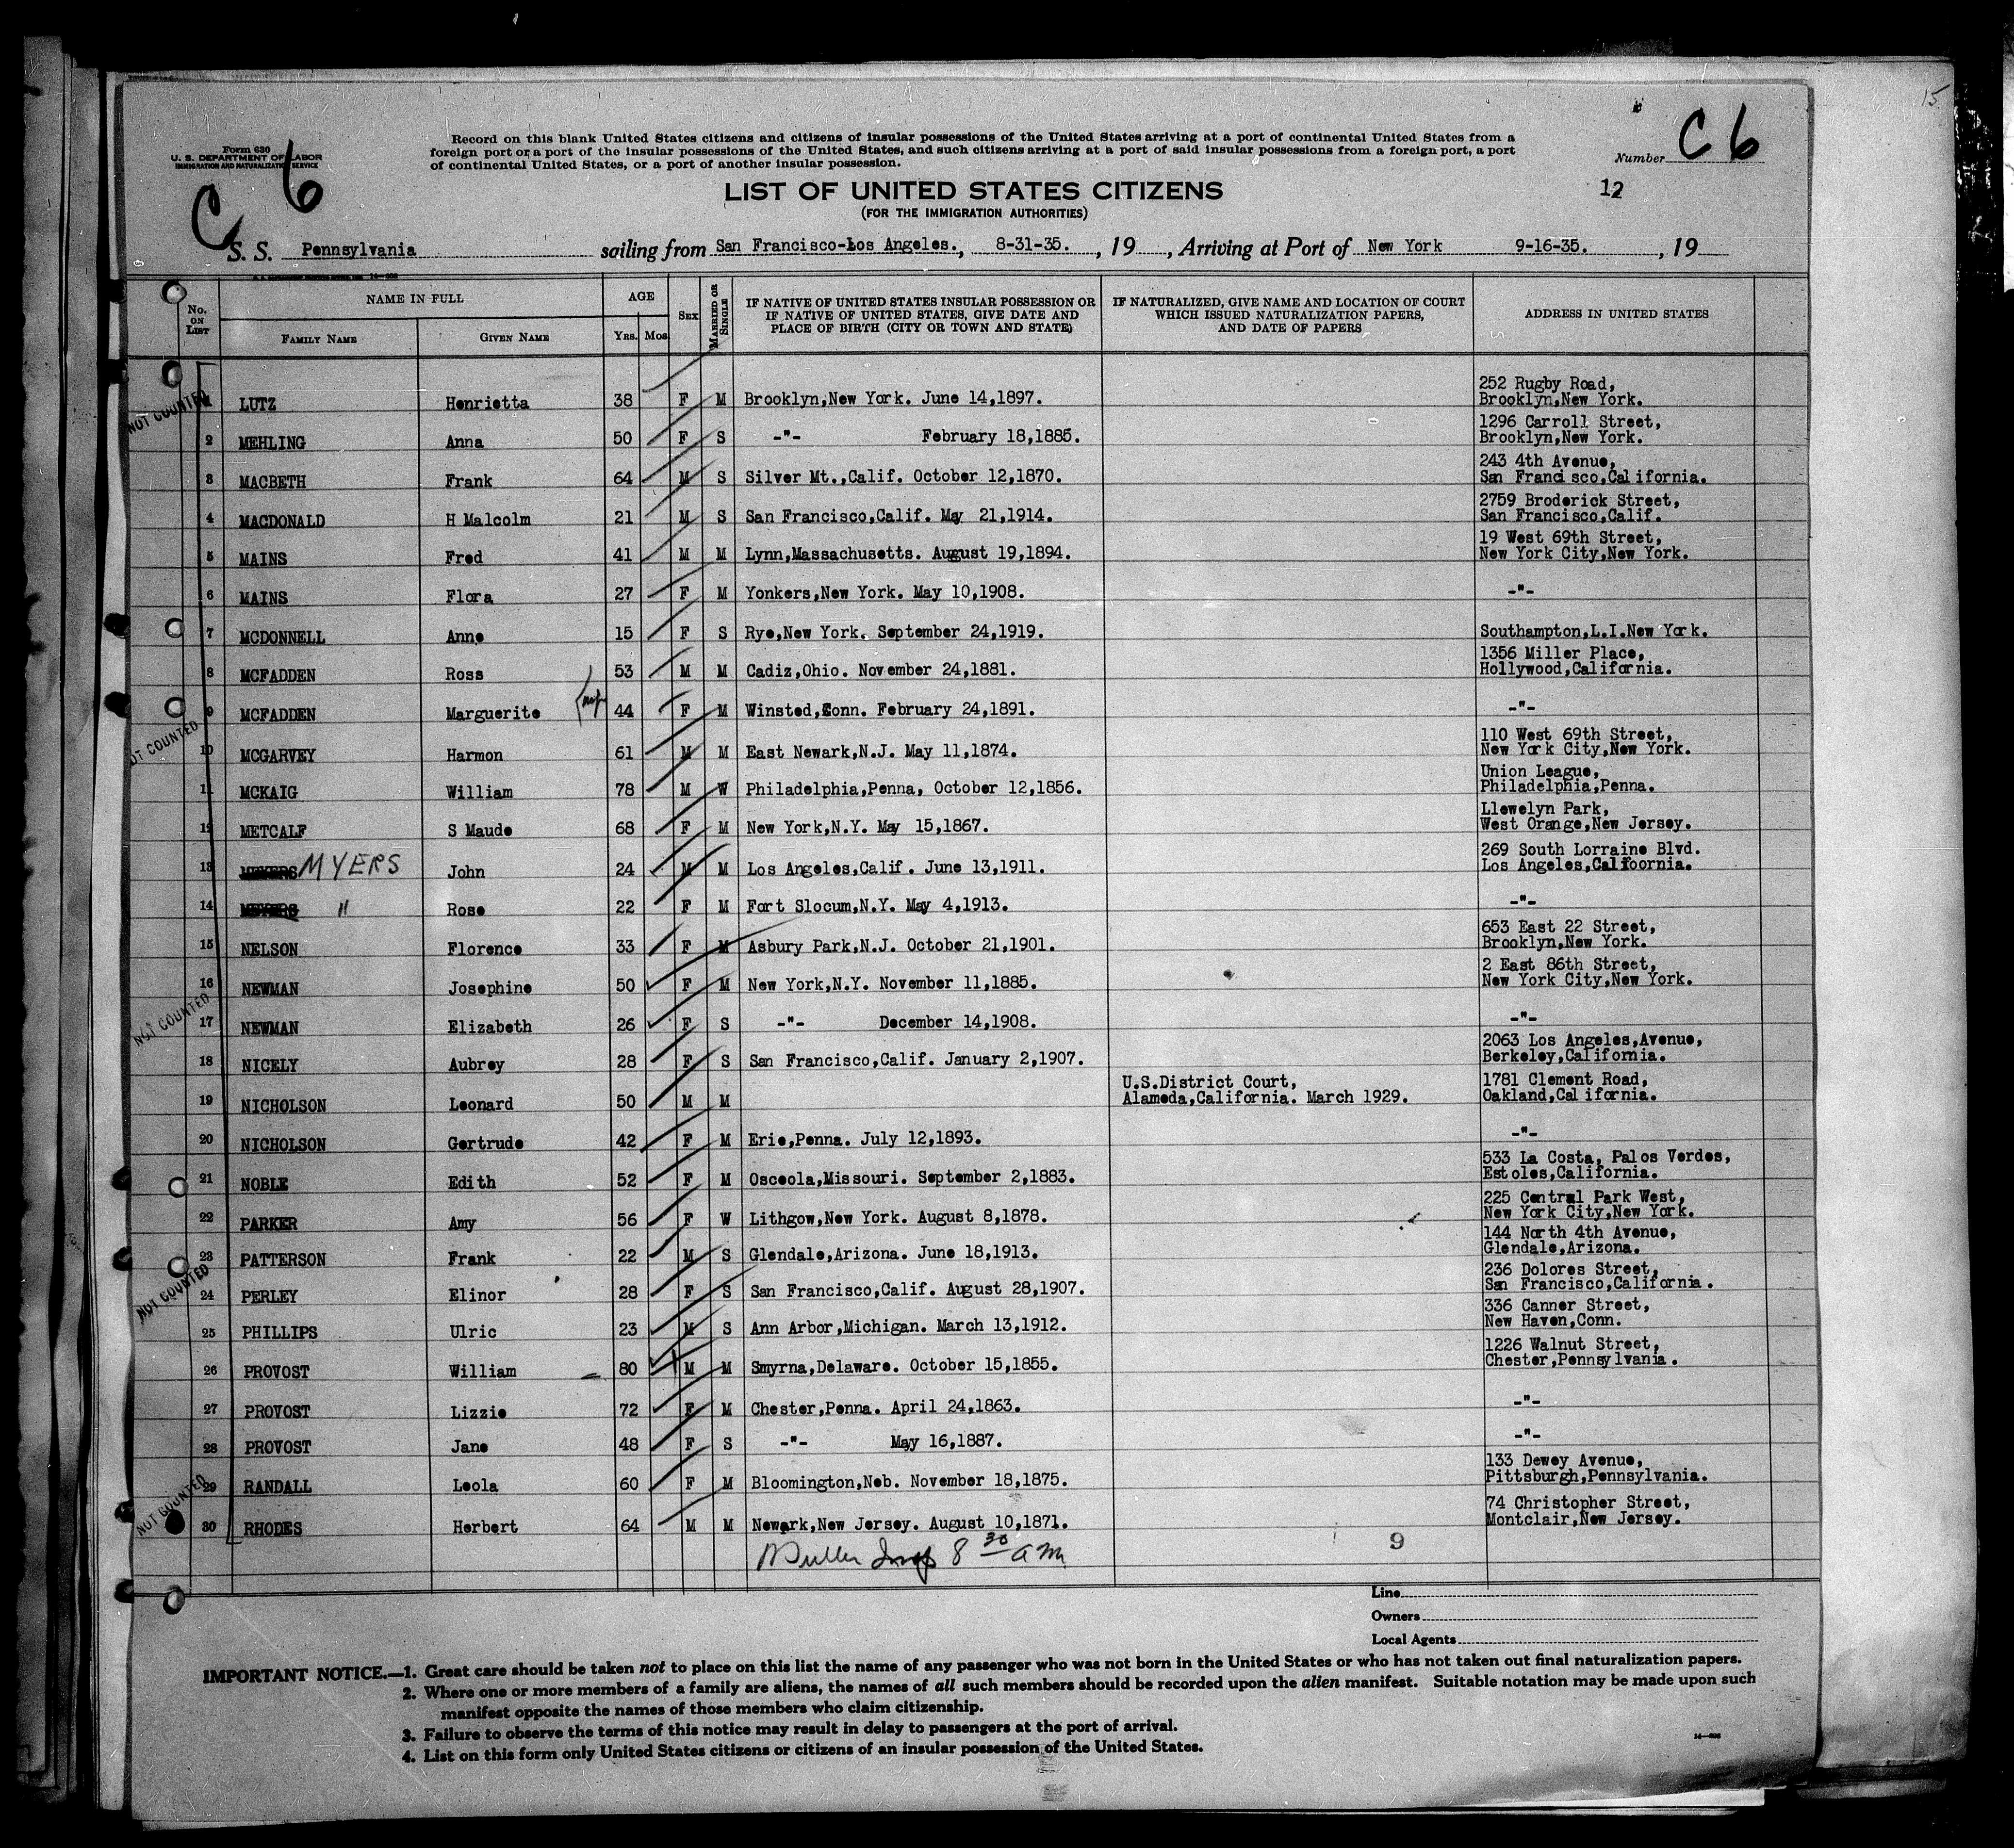 15
Form 630
U. S. DEPARTMENT OF LABOR
IMMIGRATION AND NATURALIZATION SERVICE
C 6
Record on this blank United States citizens and citizens of insular possessions of the United States arriving at a port of continental United States from a
foreign port or a port of the insular possessions of the United States, and such citizens arriving at a port of said insular possessions from a foreign port, a port
of continental United States, or a port of another insular possession.
Number C 6
12
LIST OF UNITED STATES CITIZENS
(FOR THE IMMIGRATION AUTHORITIES)
S. S. Pennsylvania sailing from San Francisco-Los Angeles., 8-31-35. , 19 , Arriving at Port of New York 9-16-35. , 19
No. ON LIST
NAME IN FULL
FAMILY NAME GIVEN NAME
AGE
YRS. MOS
SEX
MARRIED OR SINGLE
IF NATIVE OF UNITED STATES INSULAR POSSESSION OR
IF NATIVE OF UNITED STATES, GIVE DATE AND
PLACE OF BIRTH (CITY OR TOWN AND STATE)
IF NATURALIZED, GIVE NAME AND LOCATION OF COURT
WHICH ISSUED NATURALIZATION PAPERS,
AND DATE OF PAPERS
ADDRESS IN UNITED STATES
NOT COUNTED
252 Rugby Road,
1 LUTZ Henrietta 38 F M Brooklyn,New York. June 14,1897. Brooklyn,New York.
1296 Carroll Street,
2 MEHLING Anna 50 F S -"- February 18,1885. Brooklyn,New York.
243 4th Avenue,
3 MACBETH Frank 64 M S Silver Mt.,Calif. October 12,1870. San Franci sco,California.
2759 Broderick Street,
4 MACDONALD H Malcolm 21 M S San Francisco,Calif. May 21,1914. San Francisco,Calif.
19 West 69th Street,
5 MAINS Fred 41 M M Lynn,Massachusetts. August 19,1894. New York City,New York.
6 MAINS Flora 27 F M Yonkers,New York. May 10,1908. -"-
7 MCDONNELL Anne 15 F S Rye,New York. September 24,1919. Southampton,L.I.New York.
1356 Miller Place,
8 MCFADDEN Ross 53 M M Cadiz,Ohio. November 24,1881. Hollywood,California.
9 MCFADDEN Marguerite 44 F M Winsted,Conn. February 24,1891. -"-
NOT COUNTED
110 West 69th Street,
10 MCGARVEY Harmon 61 M M East Newark,N.J. May 11,1874. New York City,New York.
Union League,
11 MCKAIG William 78 M W Philadelphia,Penna, October 12,1856. Philadelphia,Penna.
Llewelyn Park,
12 METCALF S Maude 68 F M New York,N.Y. May 15,1867. West Orange,New Jersey.
269 South Lorraine Blvd.
13 MEYERS MYERS John 24 M M Los Angeles,Calif. June 13,1911. Los Angeles,Califoornia.
14 MEYERS " Rose 22 F M Fort Slocum,N.Y. May 4,1913. -"-
653 East 22 Street,
15 NELSON Florence 33 F M Asbury Park,N.J. October 21,1901. Brooklyn,New York.
2 East 86th Street,
16 NEWMAN Josephine 50 F M New York,N.Y. November 11,1885. New York City,New York.
NOT COUNTED
17 NEWMAN Elizabeth 26 F S -"- December 14,1908. -"-
2063 Los Angeles,Avenue,
18 NICELY Aubrey 28 F S San Francisco,Calif. January 2,1907. Berkeley,California.
U.S.District Court, 1781 Clement Road,
19 NICHOLSON Leonard 50 M M Alameda,California. March 1929. Oakland,California.
20 NICHOLSON Gertrude 42 F M Erie,Penna. July 12,1893. -"-
533 La Costa, Palos Verdes,
21 NOBLE Edith 52 F M Osceola,Missouri. September 2,1883. Estoles,California.
225 Central Park West,
22 PARKER Amy 56 F W Lithgow,New York. August 8,1878. New York City,New York.
144 North 4th Avenue,
23 PATTERSON Frank 22 M S Glendale,Arizona. June 18,1913. Glendale,Arizona.
NOT COUNTED
236 Dolores Street,
24 PERLEY Elinor 28 F S San Francisco,Calif. August 28,1907. San Francisco,California.
336 Canner Street,
25 PHILLIPS Ulric 23 M S Ann Arbor,Michigan. March 13,1912. New Haven,Conn.
1226 Walnut Street,
26 PROVOST William 80 M M Smyrna,Delaware. October 15,1855. Chester,Pennsylvania.
27 PROVOST Lizzie 72 F M Chester,Penna. April 24,1863. -"-
28 PROVOST Jane 48 F S -"- May 16,1887. -"-
133 Dewey Avenue,
29 RANDALL Leola 60 F M Bloomington,Neb. November 18,1875. Pittsburgh,Pennsylvania.
NOT COUNTED
74 Christopher Street,
30 RHODES Herbert 64 M M Newark,New Jersey. August 10,1871. Montclair,New Jersey.
Muller Insp 8 30 AM
9
Line
Owners
Local Agents
IMPORTANT NOTICE.—1. Great care should be taken not to place on this list the name of any passenger who was not born in the United States or who has not taken out final naturalization papers.
2. Where one or more members of a family are aliens, the names of all such members should be recorded upon the alien manifest. Suitable notation may be made upon such
manifest opposite the names of those members who claim citizenship.
3. Failure to observe the terms of this notice may result in delay to passengers at the port of arrival.
4. List on this form only United States citizens or citizens of an insular possession of the United States.